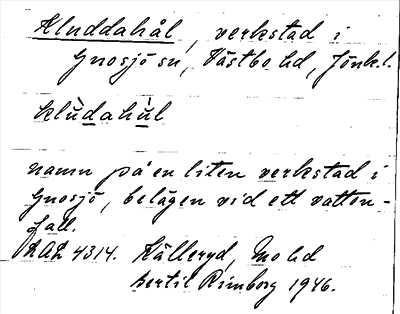 Kluddahål, verkstad i
Gnosjö sn, Västbo hd, Jönk.l.
klùdahùl
namn på en liten verkstad i
Gnosjö, belägen vid ett vatten-
fall.
LAL 4314. Källeryd, Mo hd
Bertil Rimborg 1946.